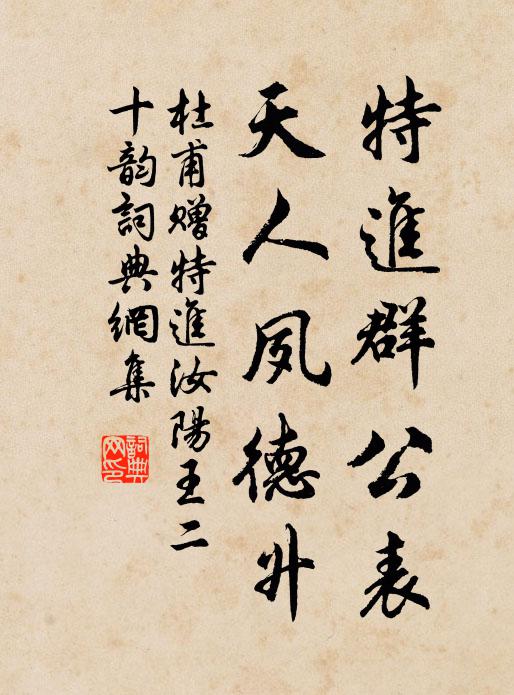 特進群公表
天人夙德升
杜甫贈特進汝陽王二
十韵詞典網集
詞典网印